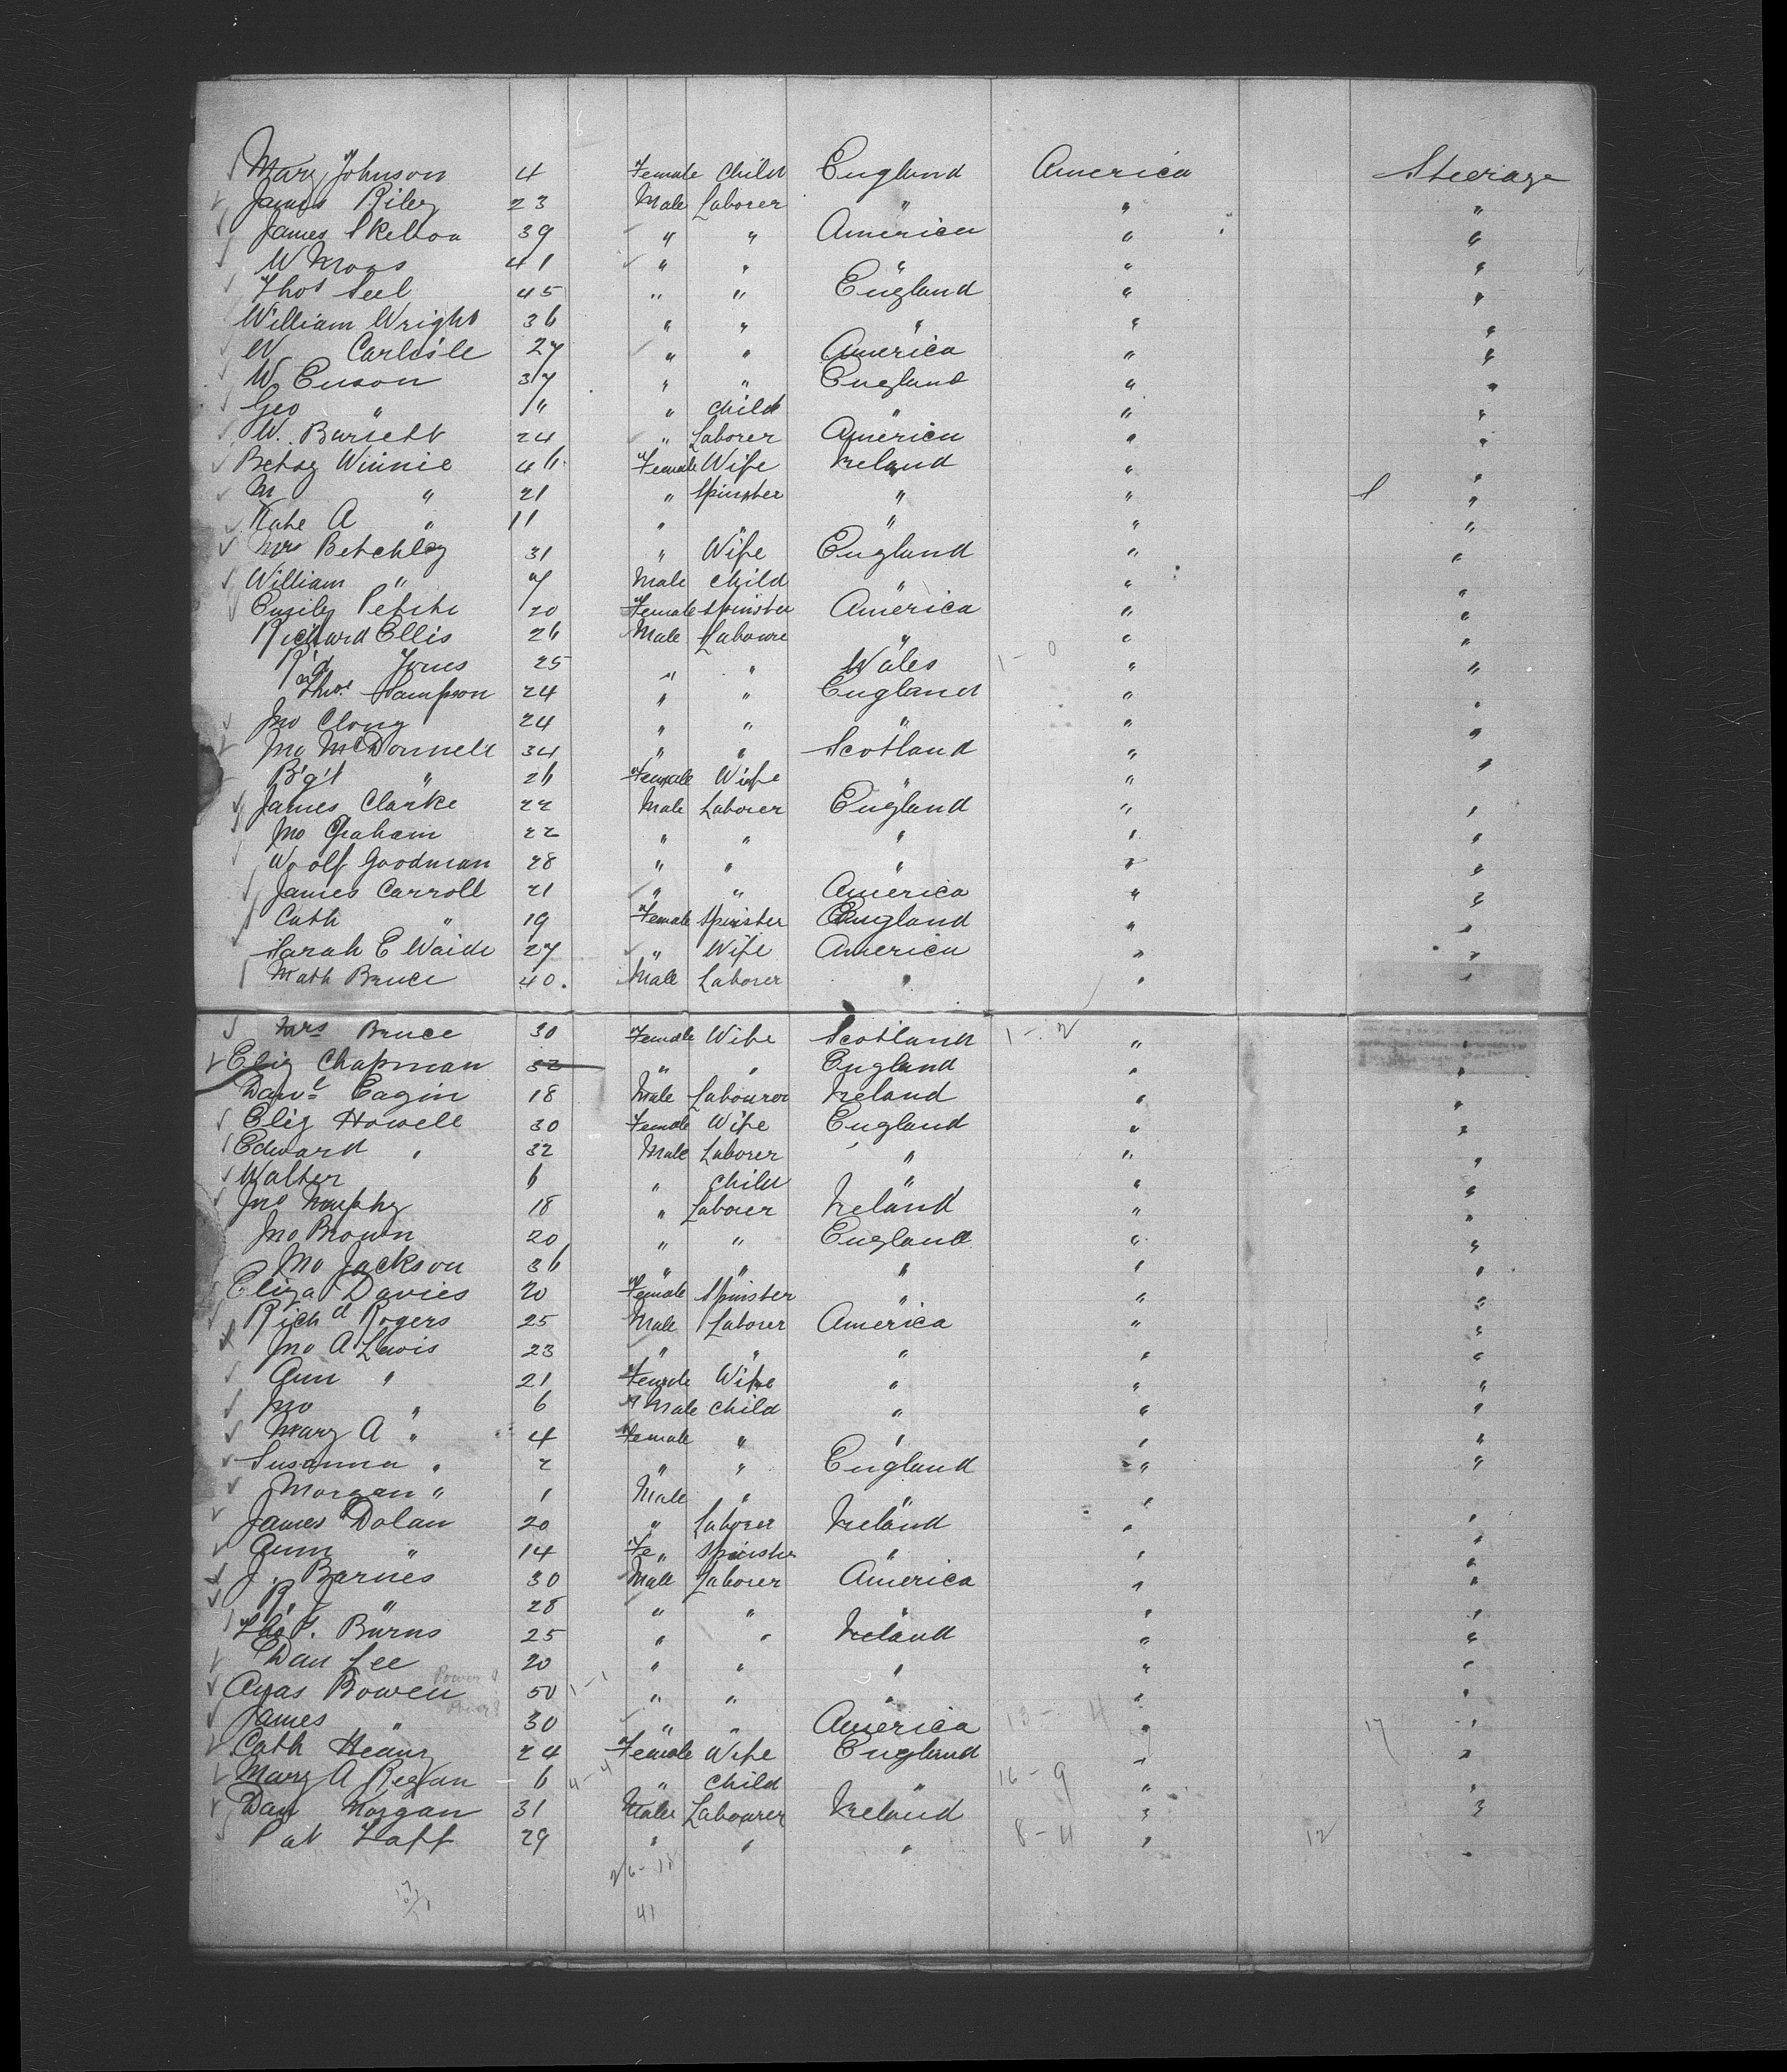 Mary Johnson 4 Female Child England America Steerage
James Riley 23 Male Laborer " " "
James Skelton 39 " " America " "
W Moss 41 " " " " "
Thos Seel 45 " " England " "
William Wright 36 " " " " "
W Carlisle 27 " " America " "
W. Cuson 37 " " England " "
Geo " 1" " child " " "
W. Bursett 24 " Laborer America " "
Betsy Winnie 46 Female Wife Ireland " "
M " 21 " Spinster " " "
Kate A " 11 " " " " "
Mrs Betchley 31 " Wife England " "
William " 7 Male Child " " "
Emily Petite 20 Female Spinster America " "
Richard Ellis 26 Male Laboure " " "
R'd Jones 25 " " Wales 1-0 " "
Thos. Sampson 24 " " England " "
Jno Clong 24 " " " " "
Jno McDonnell 34 " " Scotland " "
B'g't " 26 Female Wife " " "
James Clarke 22 Male Laborer England " "
Jno Graham 22 " " " " "
Woolf Goodman 28 " " " " "
James Carroll 21 " " America " "
Cath " 19 Female Spinster England " "
Sarah C Waide 27 " Wife America " "
Math Bruce 40. Male Laborer " " "
Mrs Bruce 30 Female Wife Scotland 1-2 " "
Eliz Chapman 32 " " England " "
Danl Eagin 18 Male Labourer Ireland " "
Eliz Howell 30 Female Wife England " "
Edward " 32 Male Laborer " " "
Walter 6 " Child " " "
Jno Murphy 18 " Laborer Ireland " "
Jno Brown 20 " " England " "
Jno Jackson 36 " " " " "
Eliza Davies 20 Female Spinster " " "
Richd Rogers 25 Male Laborer America " "
Jno A Lewis 23 " " " " "
Ann " 21 Female Wife " " "
Jno " 6 Male Child " " "
Mary A " 4 Female " " " "
Susanna " 2 " " England " "
Morgan " 1 Male " " " "
James Dolan 20 " Laborer Ireland " "
Ann " 14 Fe " Spinster " " "
J. Barnes 30 Male Laborer America " "
R. J " 28 " " " " "
Thos. Burns 25 " " Ireland " "
Dan Lee 20 " " " " "
Bowen 50 1-1 " " " " "
James " 30 " " America 13-4 " 17 "
Cath Henry 24 Female Wife England " "
Mary A Regan 6 4-4 " Child " 16-9 " "
Dan Morgan 31 Male Labourer Ireland " "
Pat Laff 29 " " " 8-4 " 12 "
26-18
41